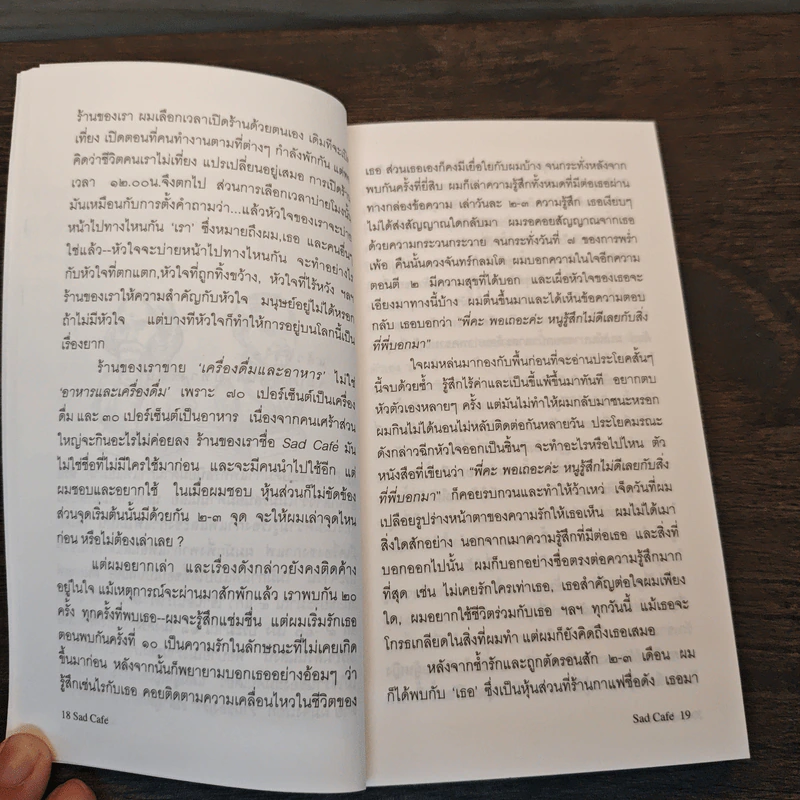 ร้านของเรา ผมเลือกเวลาเปิดร้านด้วยตนเอง เดิมทีจะเปิด
เที่ยง เปิดตอนที่คนทำงานตามที่ต่างๆ กำลังพักกัน แต่
คิดว่าชีวิตคนเราไม่เที่ยง แปรเปลี่ยนอยู่เสมอ การเปิดร้าน
เวลา ๑๒.๐๐น.จึงตกไป ส่วนการเลือกเวลาบ่ายโมงนั้น
มันเหมือนกับการตั้งคำถามว่า...แล้วหัวใจของเราจะบ่าย
หน้าไปทางไหนกัน ‘เรา’ ซึ่งหมายถึงผม,เธอ และคนอื่นๆ
ใช่แล้ว--หัวใจจะบ่ายหน้าไปทางไหนกัน จะทำอย่างไร
กับหัวใจที่ตกแตก,หัวใจที่ถูกทิ้งขว้าง, หัวใจที่ไร้หวัง ฯลฯ
ร้านของเราให้ความสำคัญกับหัวใจ มนุษย์อยู่ไม่ได้หรอก
ถ้าไม่มีหัวใจ แต่บางทีหัวใจก็ทำให้การอยู่บนโลกนี้เป็น
เรื่องยาก
ร้านของเราขาย ‘เครื่องดื่มและอาหาร’ ไม่ใช่
‘อาหารและเครื่องดื่ม’ เพราะ ๗๐ เปอร์เซ็นต์เป็นเครื่อง
ดื่ม และ ๓๐ เปอร์เซ็นต์เป็นอาหาร เนื่องจากคนเศร้าส่วน
ใหญ่จะกินอะไรไม่ค่อยลง ร้านของเราชื่อ Sad Café มัน
ไม่ใช่ชื่อที่ไม่มีใครใช้มาก่อน และจะมีคนนำไปใช้อีก แต่
ผมชอบและอยากใช้ ในเมื่อผมชอบ หุ้นส่วนก็ไม่ขัดข้อง
ส่วนจุดเริ่มต้นนั้นมีด้วยกัน ๒-๓ จุด จะให้ผมเล่าจุดไหน
ก่อน หรือไม่ต้องเล่าเลย ?
แต่ผมอยากเล่า และเรื่องดังกล่าวยังคงติดค้าง
อยู่ในใจ แม้เหตุการณ์จะผ่านมาสักพักแล้ว เราพบกัน ๒๐
ครั้ง ทุกครั้งที่พบเธอ--ผมจะรู้สึกแช่มชื่น แต่ผมเริ่มรักเธอ
ตอนพบกันครั้งที่ ๑๐ เป็นความรักในลักษณะที่ไม่เคยเกิด
ขึ้นมาก่อน หลังจากนั้นก็พยายามบอกเธออย่างอ้อมๆ ว่า
รู้สึกเช่นไรกับเธอ คอยติดตามความเคลื่อนไหวในชีวิตของ
18 Sad Café
เธอ ส่วนเธอเองก็คงมีเยื่อใยกับผมบ้าง จนกระทั่งหลังจาก
พบกันครั้งที่ยี่สิบ ผมก็เล่าความรู้สึกทั้งหมดที่มีต่อเธอผ่าน
ทางกล่องข้อความ เล่าวันละ ๒-๓ ความรู้สึก เธอเงียบๆ
ไม่ได้ส่งสัญญาณใดกลับมา ผมรอคอยสัญญาณจากเธอ
ด้วยความกระวนกระวาย จนกระทั่งวันที่ ๗ ของการพร่ำ
เพ้อ คืนนั้นดวงจันทร์กลมโต ผมบอกความในใจอีกความ
ตอนตี ๒ มีความสุขที่ได้บอก และเผื่อหัวใจของเธอจะ
เอียงมาทางนี้บ้าง ผมตื่นขึ้นมาและได้เห็นข้อความตอบ
กลับ เธอบอกว่า “พี่คะ พอเถอะค่ะ หนูรู้สึกไม่ดีเลยกับสิ่ง
ที่พี่บอกมา”
ใจผมหล่นมากองกับพื้นก่อนที่จะอ่านประโยคสั้นๆ
นี้จบด้วยซ้ำ รู้สึกไร้ค่าและเป็นขี้แพ้ขึ้นมาทันที อยากตบ
หัวตัวเองหลายๆ ครั้ง แต่มันไม่ทำให้ผมกลับมาชนะหรอก
ผมกินไม่ได้นอนไม่หลับติดต่อกันหลายวัน ประโยคมรณะ
ดังกล่าวฉีกหัวใจออกเป็นชิ้นๆ จะทำอะไรหรือไปไหน ตัว
หนังสือที่เขียนว่า “พี่คะ พอเถอะค่ะ หนูรู้สึกไม่ดีเลยกับสิ่ง
ที่พี่บอกมา” ก็คอยรบกวนและทำให้ว้าเหว่ เจ็ดวันที่ผม
เปลือยรูปร่างหน้าตาของความรักให้เธอเห็น ผมไม่ได้เมา
สิ่งใดสักอย่าง นอกจากเมาความรู้สึกที่มีต่อเธอ และสิ่งที่
บอกออกไปนั้น ผมก็บอกอย่างซื่อตรงต่อความรู้สึกมาก
ที่สุด เช่น ไม่เคยรักใครเท่าเธอ, เธอสำคัญต่อใจผมเพียง
ใด, ผมอยากใช้ชีวิตร่วมกับเธอ ฯลฯ ทุกวันนี้ แม้เธอจะ
โกรธเกลียดในสิ่งที่ผมทำ แต่ผมก็ยังคิดถึงเธอเสมอ
หลังจากช้ำรักและถูกตัดรอนสัก ๒-๓ เดือน ผม
ก็ได้พบกับ ‘เธอ’ ซึ่งเป็นหุ้นส่วนที่ร้านกาแฟชื่อดัง เธอมา
Sad Café 19